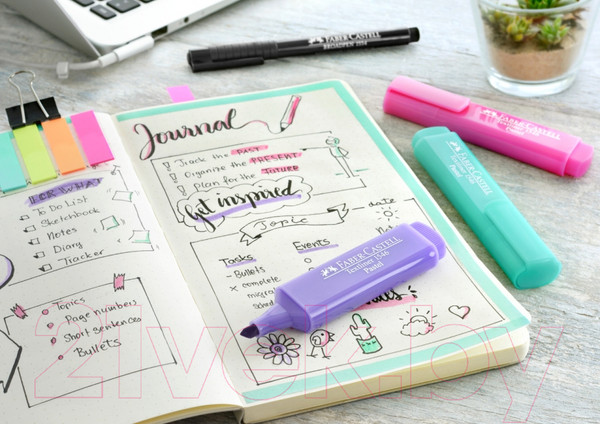 FABER-CASTELL
BROADPEN 1554
Journal
Track the PAST
Organize the PRESENT
Plan for the future
Get inspired
Topic
date
Tasks
Events
- Bullets
x complete
To Do List
Sketchbook
Notes
Diary
Tracker
Topics
Page numbers
Short sentences
Bullets
FABER-CASTELL
Textliner 1546
Pastel
FABER-CASTELL
Pastel
FABER-CASTELL
Textliner 1546
Pastel
21vek.by